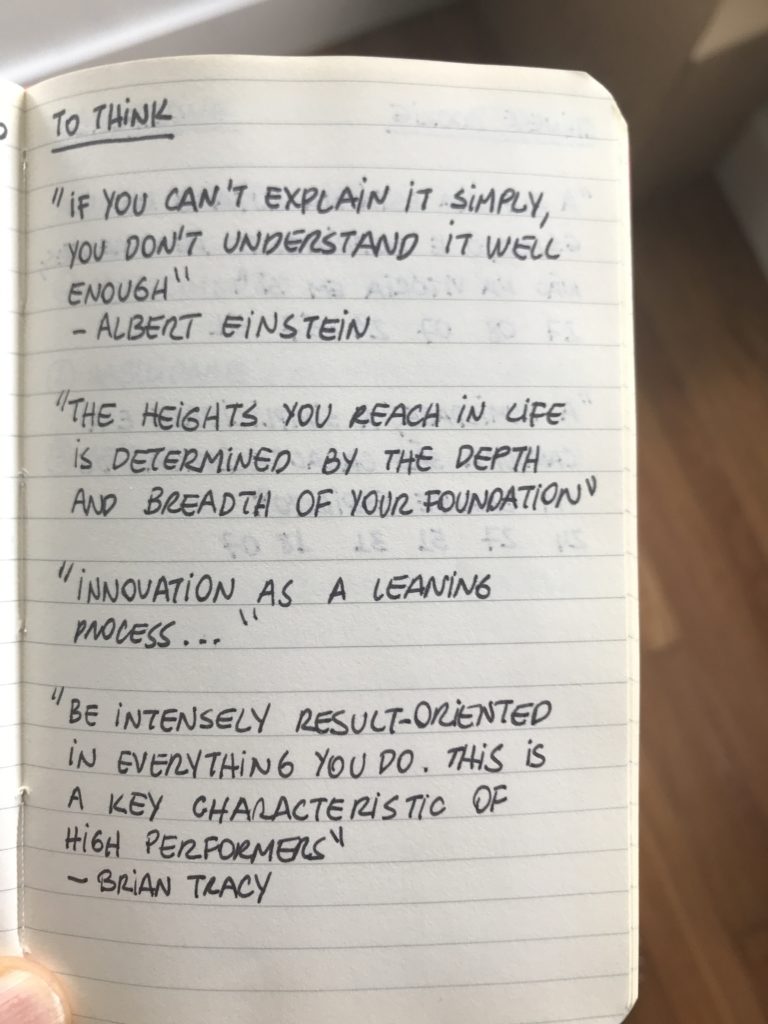 TO THINK
"IF YOU CAN'T EXPLAIN IT SIMPLY,
YOU DON'T UNDERSTAND IT WELL
ENOUGH"
- ALBERT EINSTEIN
"THE HEIGHTS YOU REACH IN LIFE
IS DETERMINED BY THE DEPTH
AND BREADTH OF YOUR FOUNDATION"
"INNOVATION AS A LEANING
PROCESS..."
"BE INTENSELY RESULT-ORIENTED
IN EVERYTHING YOU DO. THIS IS
A KEY CHARACTERISTIC OF
HIGH PERFORMERS"
- BRIAN TRACY